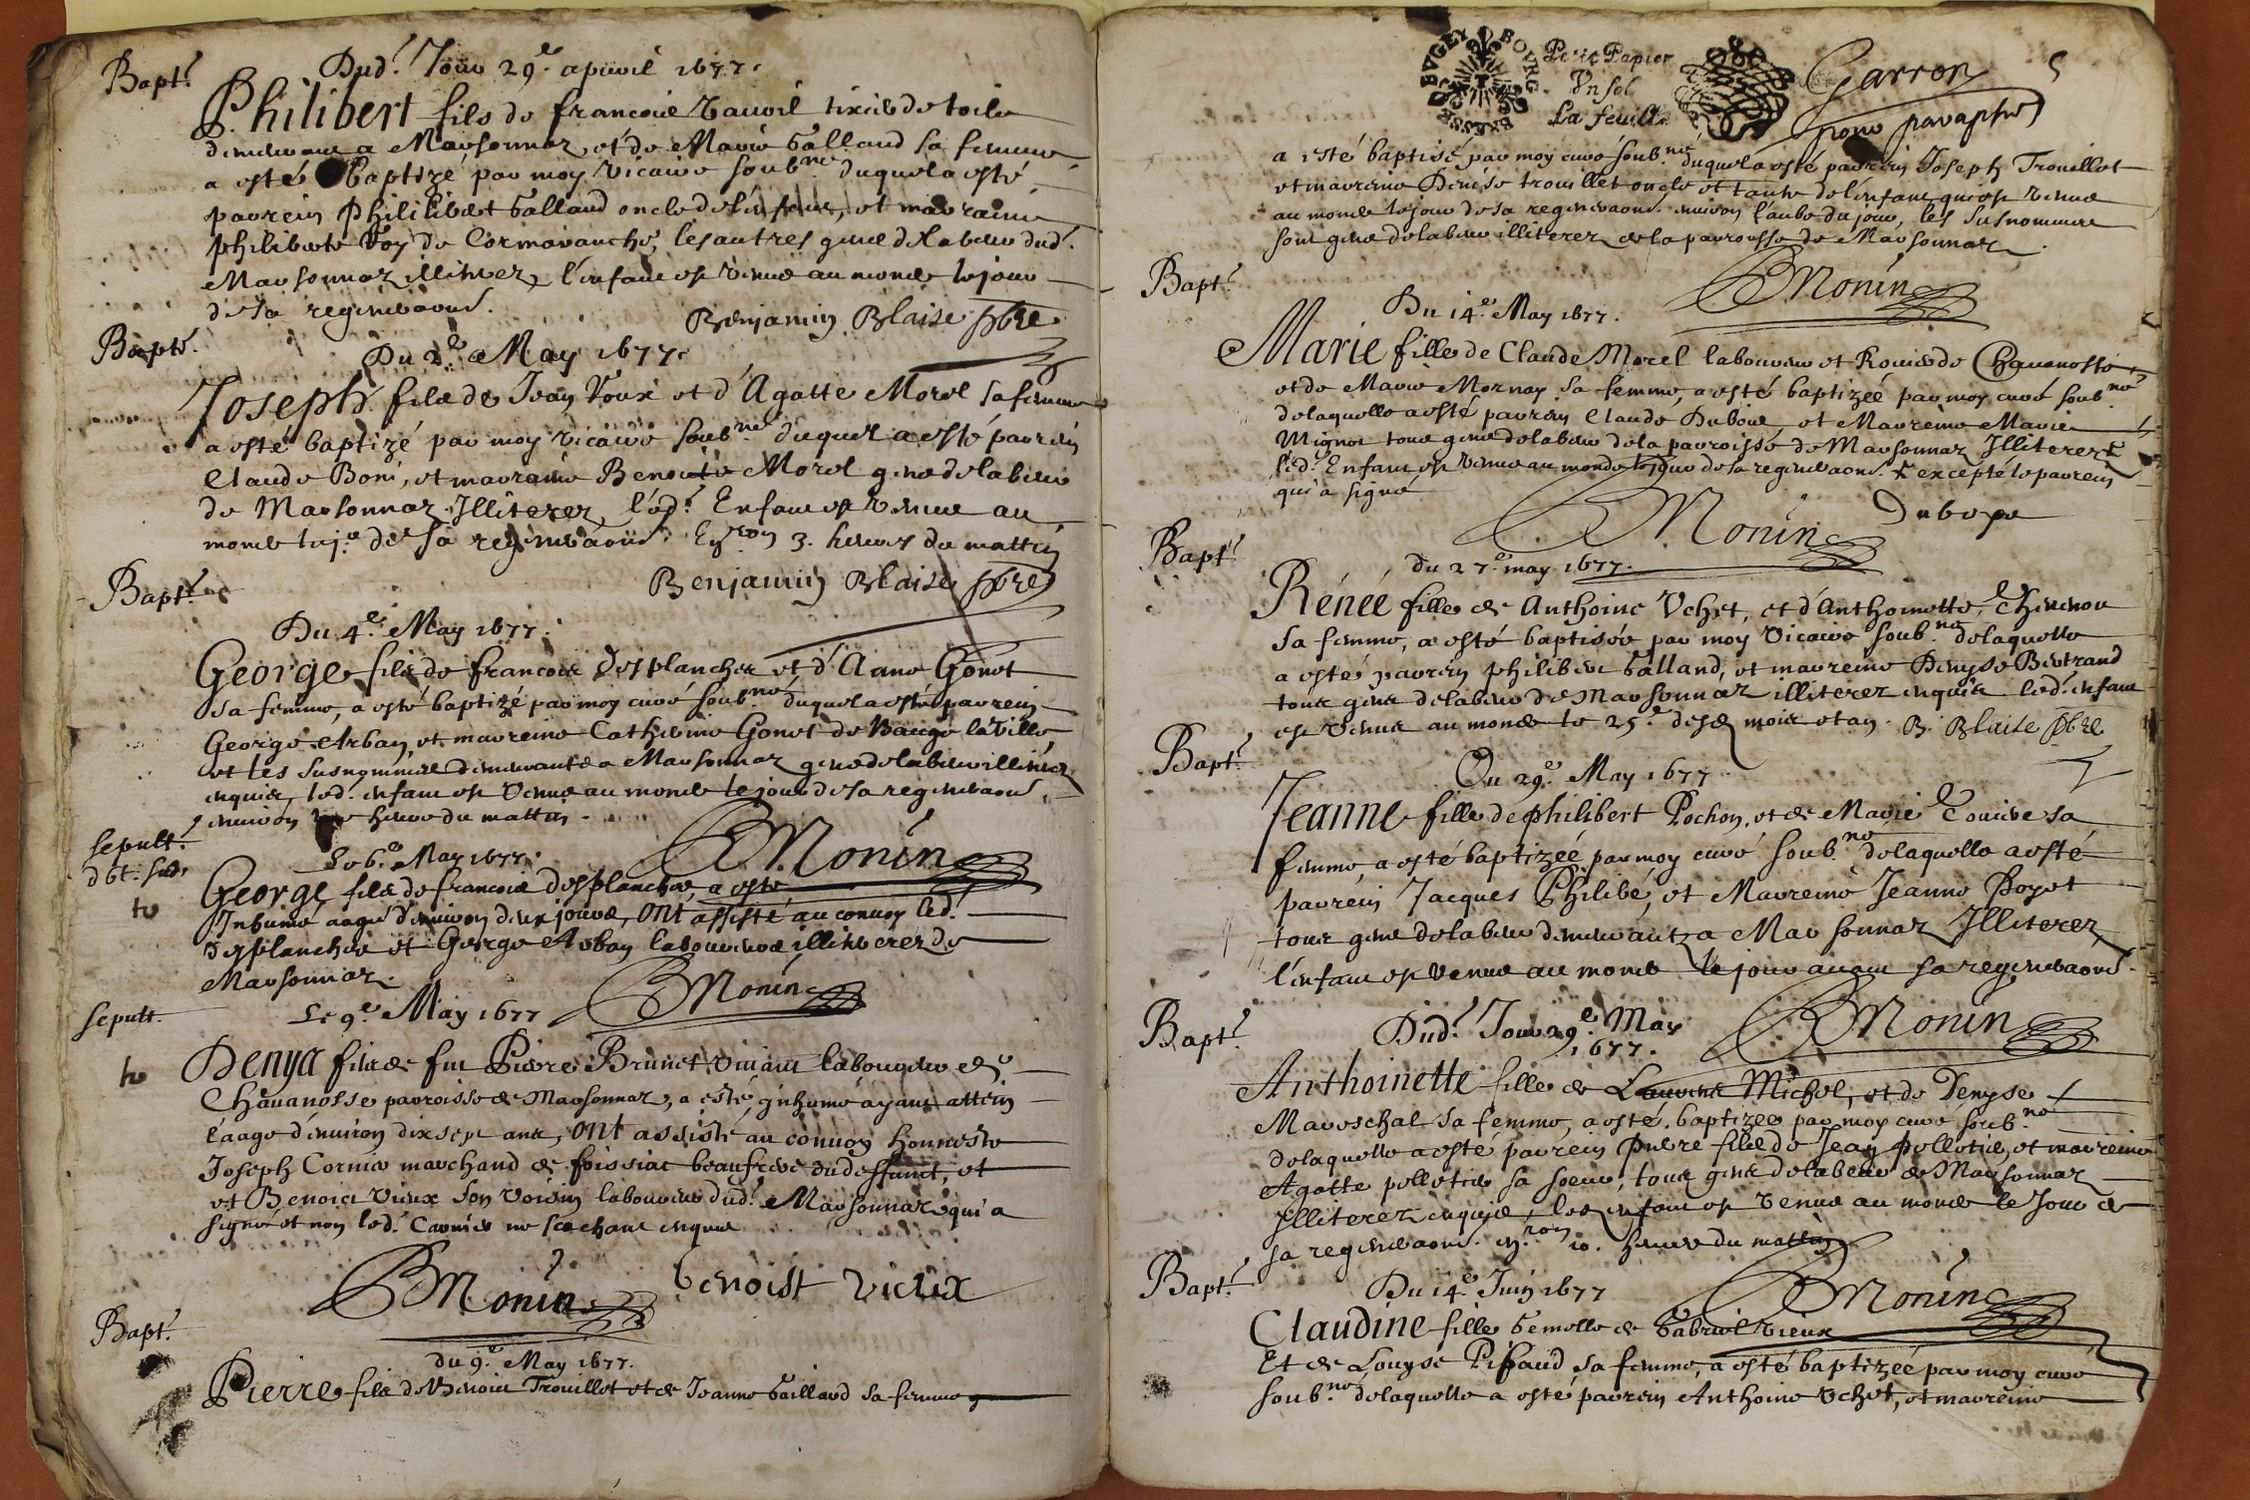 Bapt.
Dud. Jour 29e. apuril 1677.
Philibert fils de francois tixier de toile
demeurant a Marsonnaz, et de Marie Galland sa femme
a esté baptizé par moy vicaire soub.né duquel a esté
parrein Philibert Galland oncle de l'enfant, et marraine
philiberte Voy de Cormaranche, les autres gens de labeur dud.
Marsonnaz illiterez, l'enfant est venue au monde le jour
de sa regeneraon.
Benjamin Blaise pbre
Bapt.
Du 2e May 1677.
Joseph fils de Jean Voux et d'Agatte Morel sa femme
a esté baptizé par moy vicaire soub.né duquel a esté parrein
Claude Boni, et marraine Benoite Morel gens de labeur
de Marsonnaz Illiterez, led. Enfant est venue au
monde le j.r de sa regeneraon. En.ron 3. heures du mattin
Benjamin Blaise pbre
Bapt.
Du 4e. May 1677.
George fils de francois Desplanches et d'Anne Gonet
sa femme, a esté baptizé par moy curé soub.né duquel a esté parrein
George Arban, et marreine Catherine Gonet de Baugé la ville,
et les susnommez demeurants a Marsonnaz gens de labeur illiterez
enquis, led. enfant est venue au monde le jour de sa regeneraon,
enuiron heure du mattin.
sepult.
Le 6e. May 1677.
B Monin
George fils de francois Desplanches, a esté
Inhumé aagé d'enuiron deux jours, ont assisté au conuoy led.
Desplanches et George Arban laboureurs illiterez de
Marsonnaz.
B Monin
sepult.
Le 9e. May 1677
Denys fils de feu Pierre Brunet viuant laboureur de
Chauanosse parroisse de Marsonnaz, a esté inhumé ayant attein
l'aage d'enuiron dix sept ans, ont assisté au conuoy honneste
Joseph Cornier marchand de foissiat beaufrere du deffunct, et
et Benoict vieux son voisin laboureur dud. Marsonnaz qui a
signé et non led. Cornier ne scachant enquis
B Monin
benoist vieux
Bapt.
du 9e. May 1677.
Pierre fils de Benoict Trouillet et de Jeanne Gailland sa femme
BVGEY BOVRG
Petit Papier
Vn sol
La feuille
Garron
pour paraphe
5
a esté baptisé par moy curé soub.né duquel a esté parrein Joseph Trouillet
et marreine Denise trouillet oncle et tante de l'enfant qui est venue
au monde le jour de sa regeneraon. enuiron l'aube du jour, les susnommez
sont gens de labeur illiterez de la parroisse de Marsonnaz
B Monin
Bapt.
Du 14e. May 1677.
Marie fille de Claude Morel laboureur et Rouier de Chauanosse
et de Marie Mornay sa femme, a esté baptizée par moy curé soub.né
de laquelle a esté parrein Claude Dubois, et Marreine Marie
Mignot tous gens de labeur de la parroisse de Marsonnaz Illiterez +
led. Enfant est venue au monde le jour de sa regeneraon. + excepté le parrein
qui a signé
B Monin
Duboys
Bapt.
du 27e. may. 1677.
Rénéé fille de Anthoine Vchet, et d'Anthoinette Cheuenon
sa femme, a esté baptisée par moy vicaire soub.né de laquelle
a esté parrein philibert Galland, et marreine Denyse Bertrand
tous gens de labeur de Marsonnaz illiterez enquis led. enfant
est venue au monde le 25e. desd. mois et an. B. Blaise pbre
Bapt.
Du 29e. May 1677
Jeanne fille de philibert Pochon, et de Marie sa
femme, a esté baptizée par moy curé soub.né de laquelle a esté
parrein Jacques Philibé, et Marreine Jeanne Poyet
tous gens de labeur demeurants a Marsonnaz Illiterez,
l'enfant est venue au monde le jour auant sa regeneraon.
B Monin
Bapt.
Dud. Jour 29e. May
1677.
Anthoinette fille de Laurent Michel, et de Denyse
Mareschal sa femme, a esté baptizée par moy curé soub.né
de laquelle a esté parrein Pierre fils de Jean Pelletier, et marreine
Agatte pelletier sa soeur, tous gens de labeur de Marsonnaz
Illiterez enquis, led. enfant est venue au monde le Jour de
sa regeneraon. en.ron 10. heures du mattin
B Monin
Bapt.
Du 14e. Juin 1677
Claudine fille gemelle de Gabriel vieux
Et de Louyse Pifaud sa femme, a esté baptizée par moy curé
soub.né de laquelle a esté parrein Anthoine Vchet, et marreine